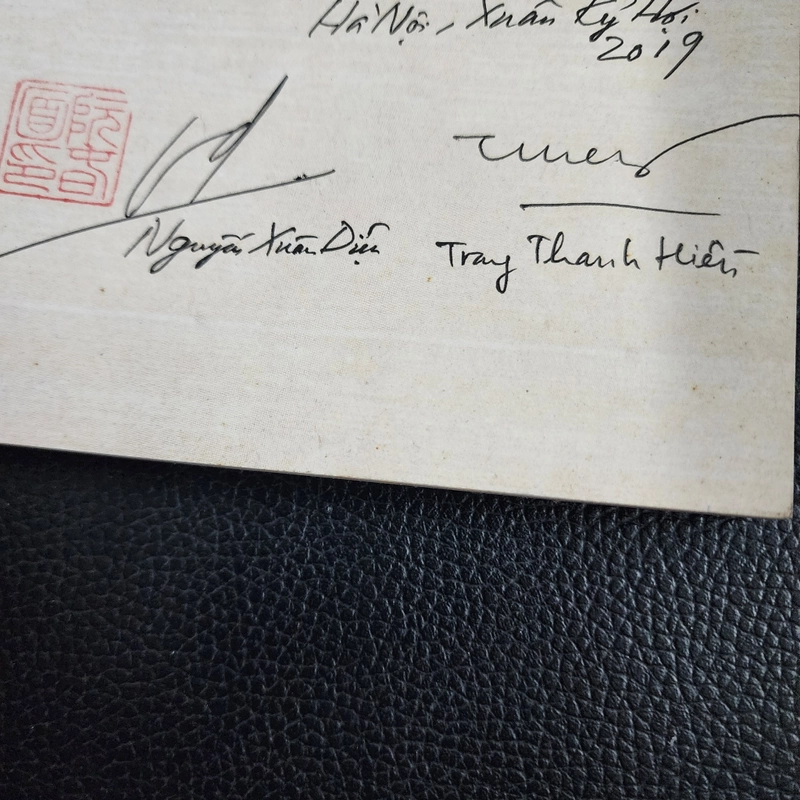 Hà Nội, Xuân Kỷ Hợi
2019
Nguyễn Xuân Diện
Trang Thanh Hiền